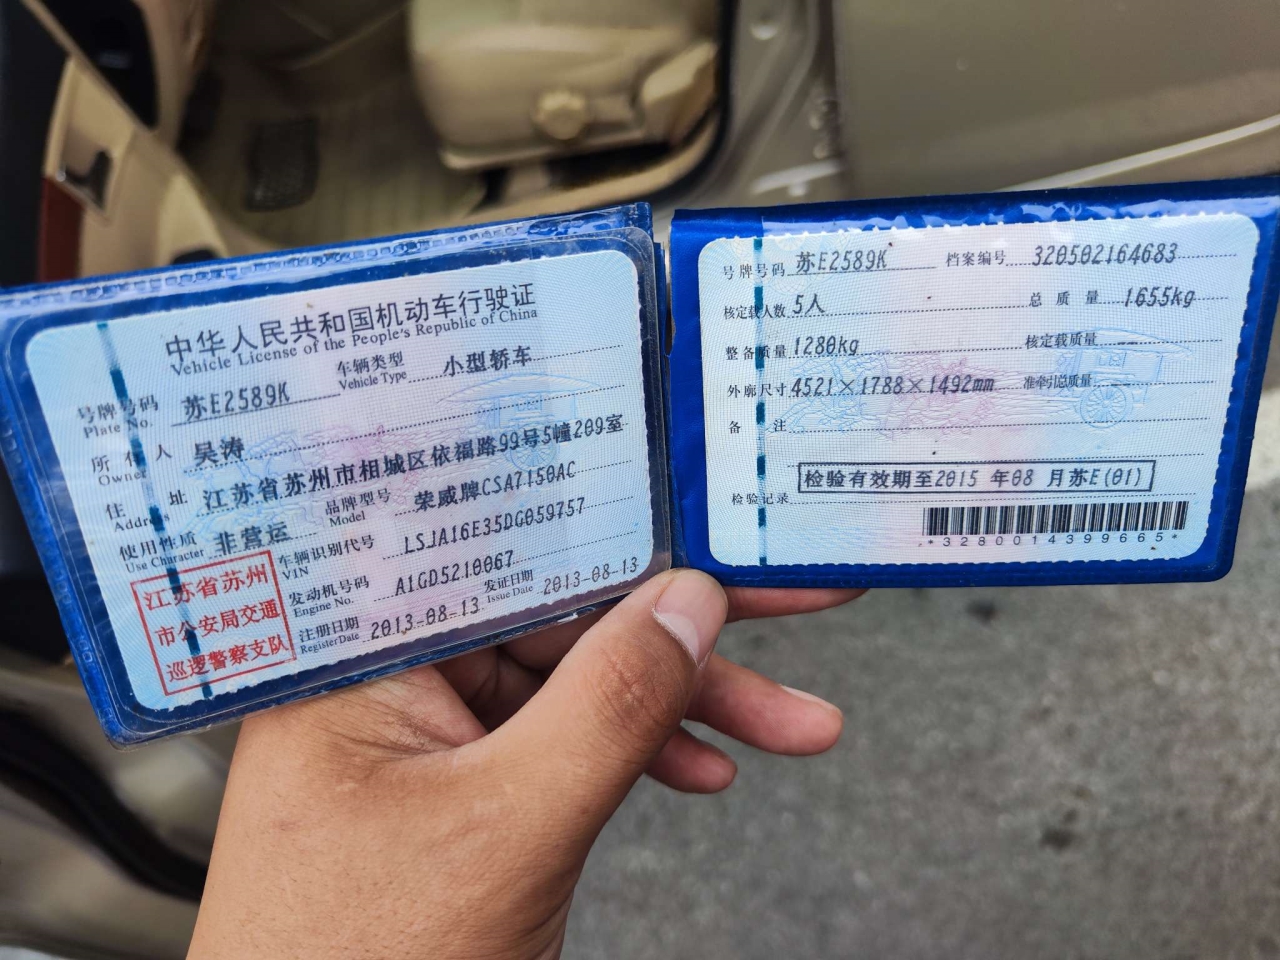 中华人民共和国机动车行驶证
Vehicle License of the People's Republic of China
号牌号码 苏E2589K 车辆类型 小型轿车
Plate No. Vehicle Type
所有人 吴涛
Owner
住址 江苏省苏州市相城区依福路99号5幢209室
Address
使用性质 非营运 品牌型号 荣威牌CSA7150AC
Use Character Model
车辆识别代号 LSJA16E35DG059757
VIN
发动机号码 A1GD5210067
Engine No.
注册日期 2013-08-13 发证日期 2013-08-13
Register Date Issue Date
江苏省苏州
市公安局交通
巡逻警察支队
号牌号码 苏E2589K 档案编号 320502164683
核定载人数 5人 总质量 1655kg
整备质量 1280kg 核定载质量
外廓尺寸 4521×1788×1492mm 准牵引总质量
备注
检验有效期至2015 年08 月苏E(01)
检验记录
*3280014399665*